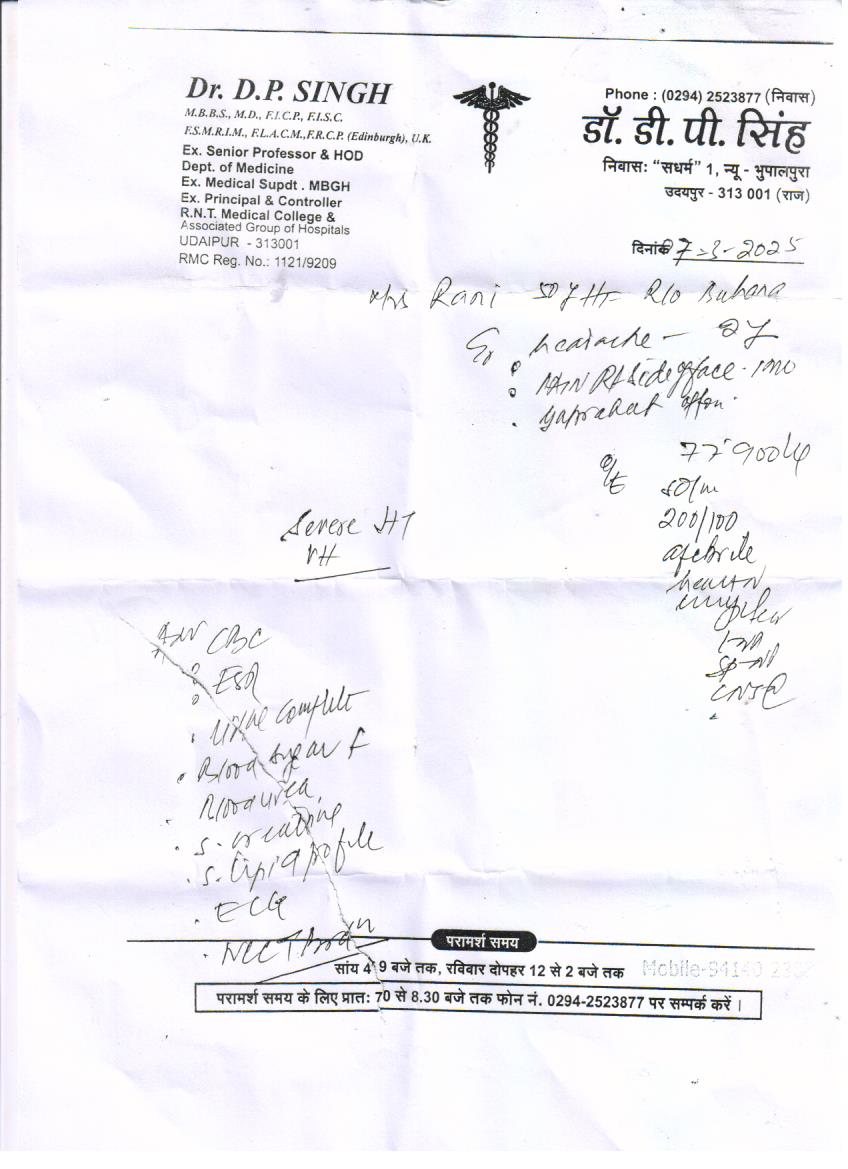 Dr. D.P. SINGH
M.B.B.S., M.D., F.I.C.P., F.I.S.C.
F.S.M.R.I.M., F.L.A.C.M.,F.R.C.P. (Edinburgh), U.K.
Ex. Senior Professor & HOD
Dept. of Medicine
Ex. Medical Supdt . MBGH
Ex. Principal & Controller
R.N.T. Medical College &
Associated Group of Hospitals
UDAIPUR - 313001
RMC Reg. No.: 1121/9209
Phone : (0294) 2523877 (निवास)
डॉ. डी. पी. सिंह
निवास: “सधर्म” 1, न्यू - भुपालपुरा
उदयपुर - 313 001 (राज)
दिनांक 7-3-2025
Mrs Rani 50 y R/o
headache - 2y
PAIN Rt side of face -
often
O/E
80/m
200/100
afebrile
CNS
Severe HT
Adv CBC
ESR
Urine complet
Blood sugar f
Blood urea
S. creatine
S. lipid profile
ECG
NCCT Brain
परामर्श समय
सांय 4 9 बजे तक, रविवार दोपहर 12 से 2 बजे तक
Mobile-94140
परामर्श समय के लिए प्रात: 70 से 8.30 बजे तक फोन नं. 0294-2523877 पर सम्पर्क करें ।